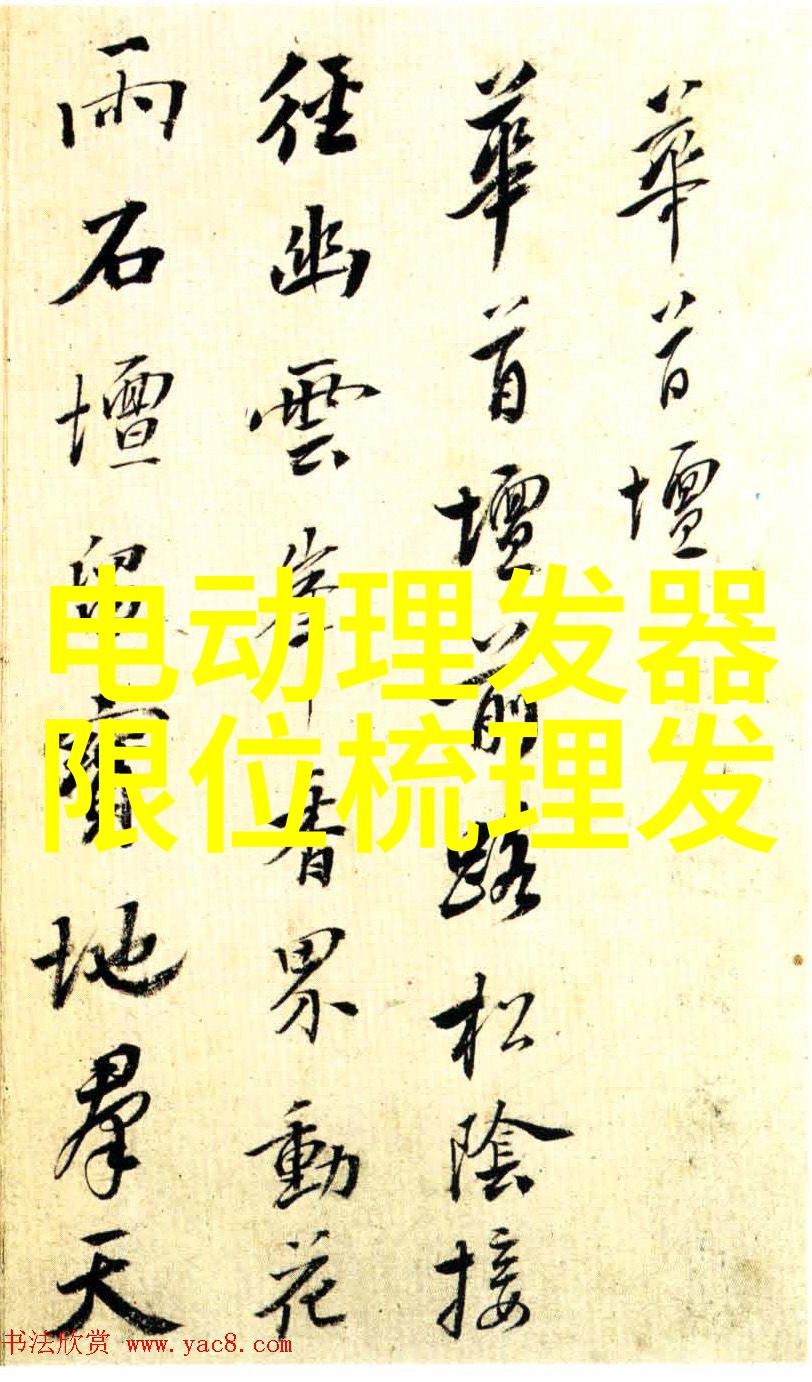 華首壇
華首壇前路松陰接
徑幽雲峯香界動花
雨石壇留寶地羣天
电动理发器
限位梳理发
书法欣赏 www.yac8.com